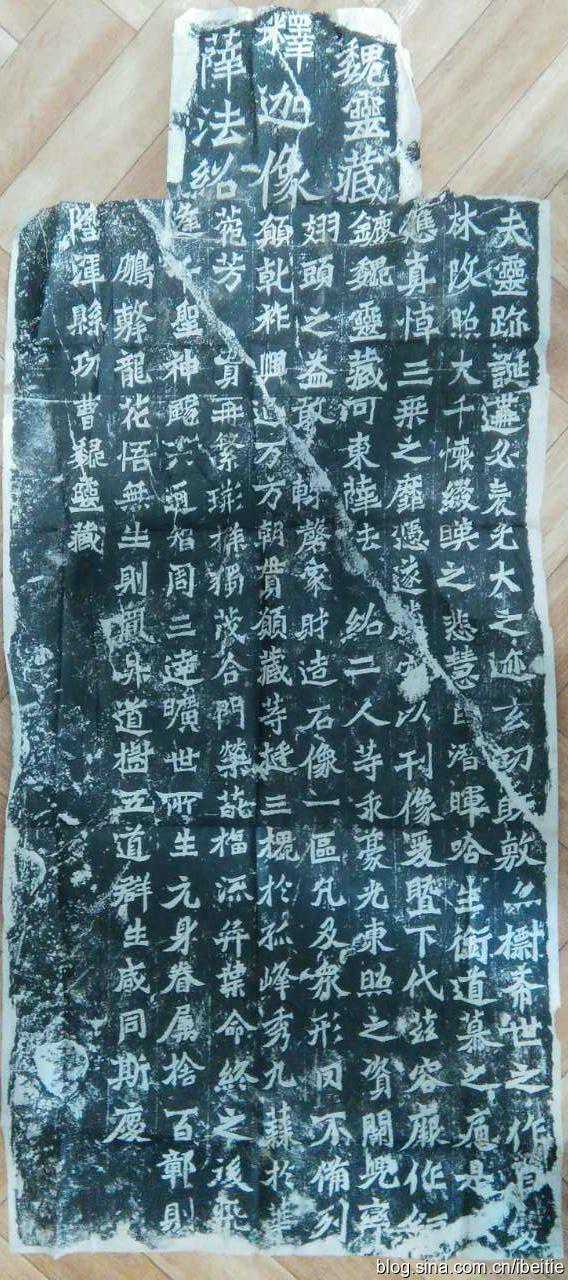 魏靈藏
釋迦像
薛法紹
夫靈跡誕遘必表光大之迹玄功既敷亦標希世之作自雙
林改照大千懷綴暎之悲慧日潛暉唅生銜道慕之痛是
應真悼三乘之靡憑遂騰以刊像爰暨下代茲容厥作
鉅鹿魏靈藏河東薛法紹二人等求豪光東照之資闕兜率
翅頭之益敢輒罄家財造石像一區凡及眾形罔不備列
願乾祚興延万方朝貫願藏等挺三槐於孤峰秀九蕀於華
菀芳實再繁荊條獨茂合門榮葩福流弈葉命終之後飛
逢千聖神颺六通智周三達曠世所生元身眷屬捨百鄣則
鵬擊龍花悟無生則鳳昇道樹五道群生咸同斯慶
陸渾縣功曹魏靈藏
blog.sina.com.cn/ibeitie